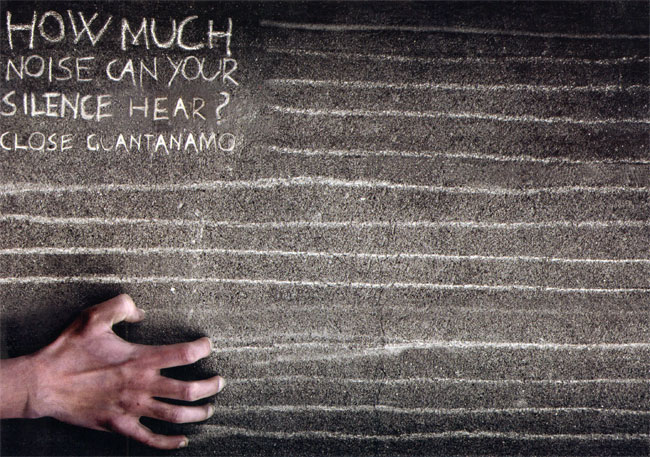 HOW MUCH
NOISE CAN YOUR
SILENCE HEAR?
CLOSE GUANTANAMO